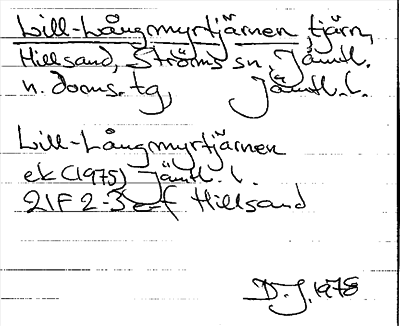 Lill-Långmyrtjärnen, tjärn,
Hillsand, Ströms sn, Jämtl.
n. doms. tg, Jämtl. l.
Lill-Långmyrtjärnen
ek (1975) Jämtl. l.
21F 2-3 e-f Hillsand
D. J. 1978